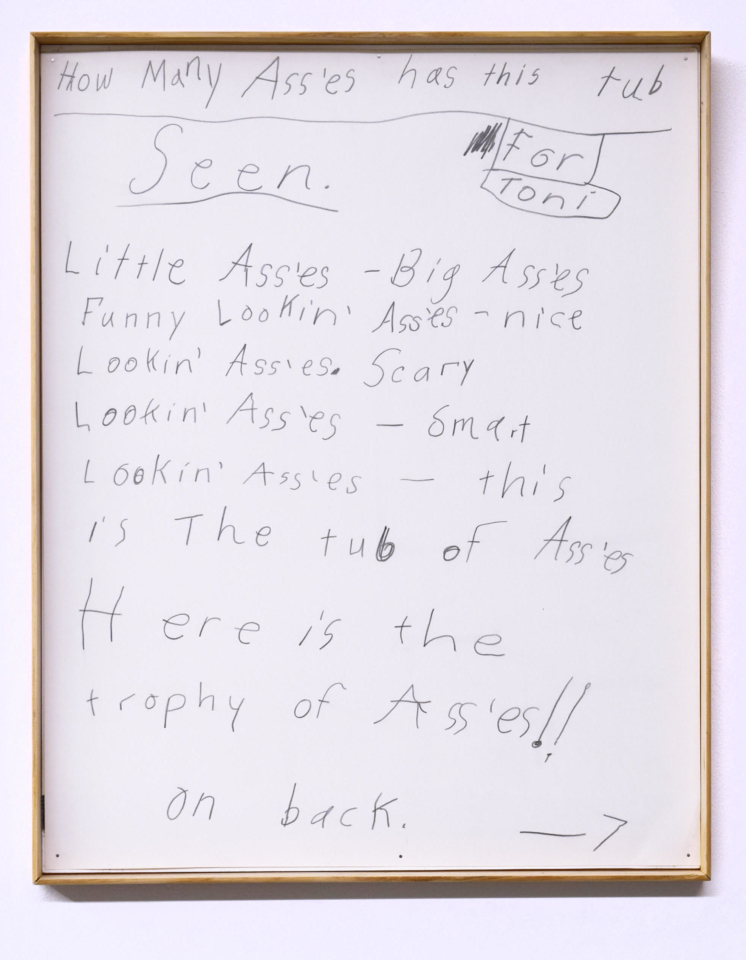 How Many Ass'es has this tub
Seen.
For
Toni
Little Ass'es - Big Ass'es
Funny Lookin' Ass'es - nice
Lookin' Ass'es. Scary
Lookin' Ass'es - Smart
Lookin' Ass'es - this
is The tub of Ass'es
Here is the
trophy of Ass'es!!
on back. →